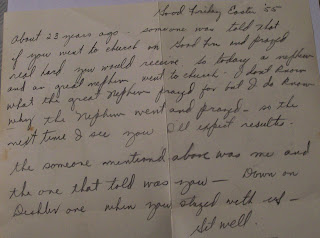 Good Friday Easter '55
About 23 years ago - someone was told that
if you went to church on Good Fri and prayed
real hard you would receive. So today a nephew
and a great nephew went to church - I don't know
what the great Nephew prayed for but I do know
why the Nephew went and prayed - so the
next time I see you I'll expect results.
the someone mentioned above was me and
the one that told was you - Down on
one when you stayed with us -
well.